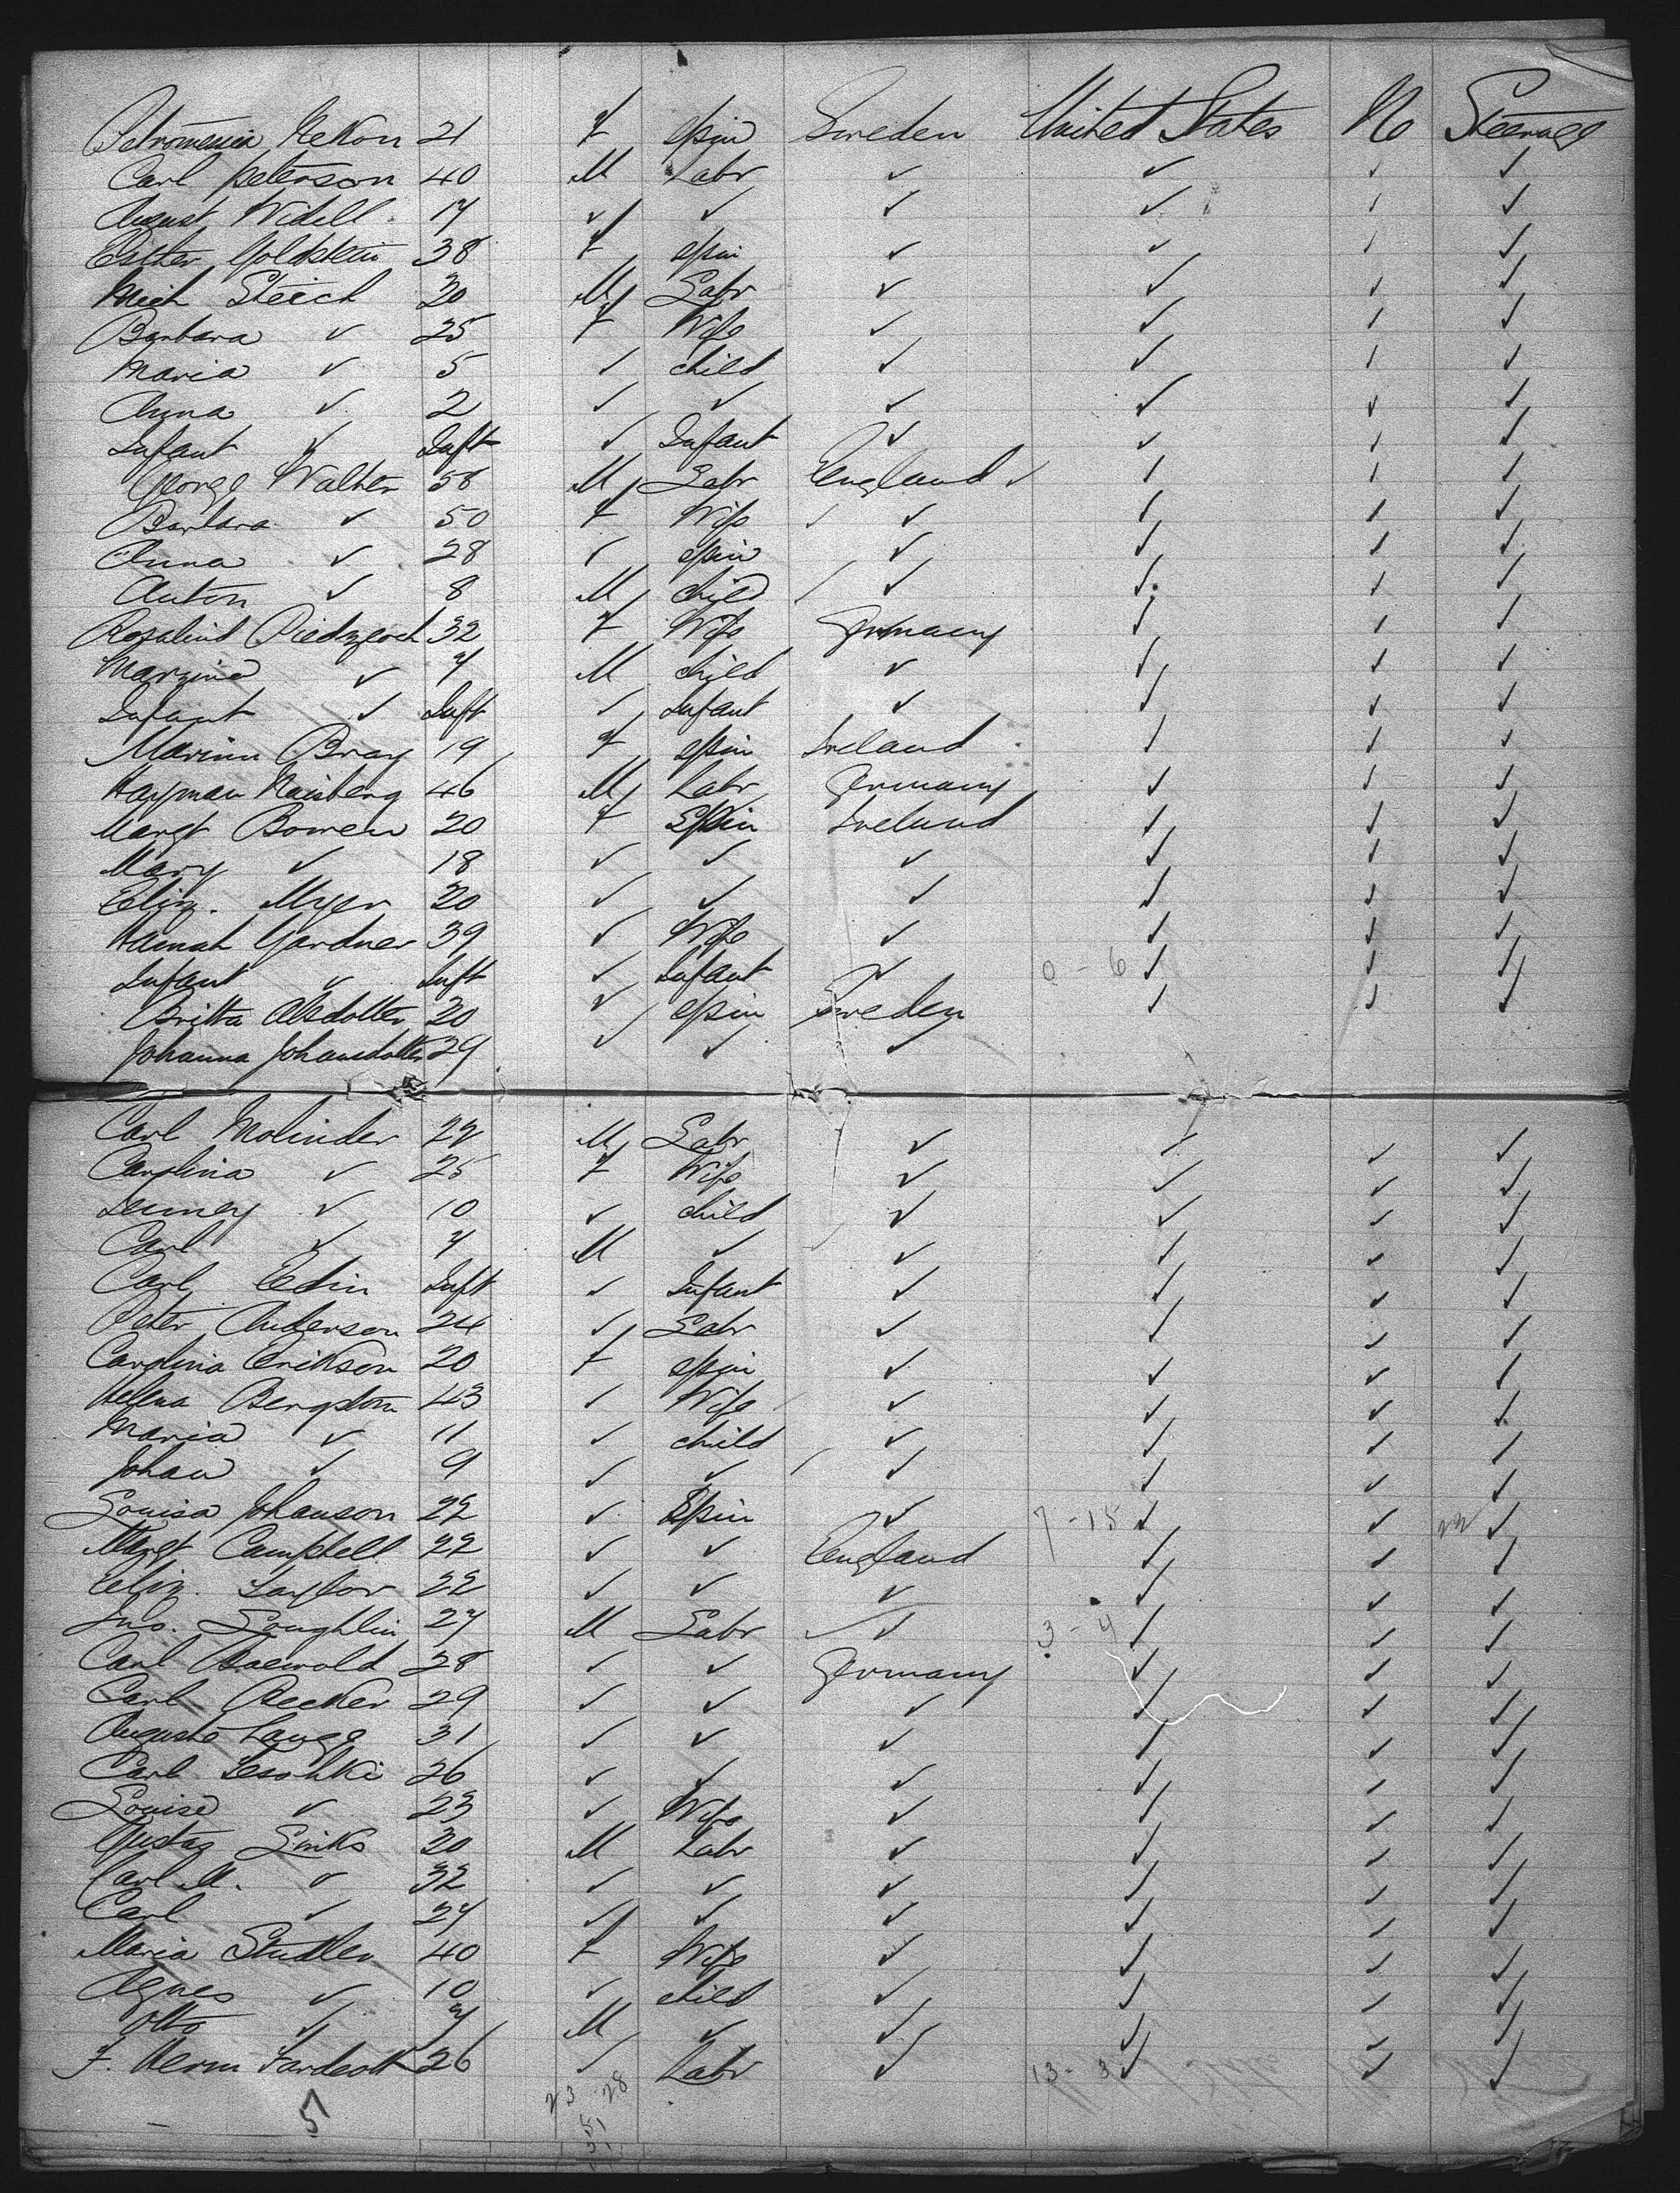 Petronessia Hekon 21 F Spin Sweden United States No Steerage
Carl Peterson 40 M Labr ✓ ✓ ✓ ✓
August Widell 17 ✓ ✓ ✓ ✓ ✓ ✓
Esther Goldstein 38 F Spin ✓ ✓ ✓ ✓
Mich Steich 30 M Labr ✓ ✓ ✓ ✓
Barbara ✓ 25 F Wife ✓ ✓ ✓ ✓
Maria ✓ 5 ✓ child ✓ ✓ ✓ ✓
Anna ✓ 2 ✓ ✓ ✓ ✓ ✓ ✓
Infant ✓ Inft ✓ Infant ✓ ✓ ✓ ✓
George Walter 58 M Labr England ✓ ✓ ✓ ✓
Barbara ✓ 50 F Wife ✓ ✓ ✓ ✓
Anna ✓ 28 ✓ Spin ✓ ✓ ✓ ✓
Anton ✓ 8 M child ✓ ✓ ✓ ✓
Rosalind 32 F Wife Germany ✓ ✓ ✓
✓ 7 M child ✓ ✓ ✓ ✓
Infant ✓ Inft ✓ Infant ✓ ✓ ✓ ✓
Bray 19 F Spin Ireland ✓ ✓ ✓
Hayman 46 M Labr Germany ✓ ✓ ✓
Margt Bowen 20 F Spin Ireland ✓ ✓ ✓
Mary ✓ 18 ✓ ✓ ✓ ✓ ✓ ✓
Eliz. Myer 20 ✓ ✓ ✓ ✓ ✓ ✓
Hannah Gardner 39 ✓ Wife ✓ ✓ ✓ ✓
Infant ✓ Inft ✓ Infant ✓ 0 - 6 ✓ ✓ ✓
Britta Alsdotter 30 ✓ Spin Sweden ✓ ✓ ✓
Johanna Johansdotter 29 ✓ ✓ ✓
Carl Molinder 22 M Labr ✓ ✓ ✓ ✓
Carolina ✓ 25 F Wife ✓ ✓ ✓ ✓
Jenney ✓ 10 ✓ child ✓ ✓ ✓ ✓
Carl ✓ 7 M ✓ ✓ ✓ ✓ ✓
Carl Edin Inft ✓ Infant ✓ ✓ ✓ ✓
Peter Anderson 24 ✓ Labr ✓ ✓ ✓ ✓
Carolina Erikson 20 F Spin ✓ ✓ ✓ ✓
Helena Bergstom 43 ✓ Wife ✓ ✓ ✓ ✓
Maria ✓ 11 ✓ child ✓ ✓ ✓ ✓
Johan ✓ 9 ✓ ✓ ✓ ✓ ✓ ✓
Louisa Johanson 22 ✓ Spin ✓ 7 - 15 ✓ ✓ 22 ✓
Margt Campbell 22 ✓ ✓ England ✓ ✓ ✓
Eliz. Taylor 22 ✓ ✓ ✓ ✓ ✓ ✓
Jno. Loughlin 27 M Labr ✓ 3 - 4 ✓ ✓ ✓
Carl Baewold 28 ✓ ✓ Germany ✓ ✓ ✓
Carl Becker 29 ✓ ✓ ✓ ✓ ✓ ✓
Auguste Lange 31 ✓ ✓ ✓ ✓ ✓ ✓
Carl Leschki 26 ✓ ✓ ✓ ✓ ✓ ✓
Louise ✓ 23 ✓ Wife ✓ ✓ ✓ ✓
Gustav Links 30 M Labr ✓ ✓ ✓ ✓
Carl M. ✓ 32 ✓ ✓ ✓ ✓ ✓ ✓
Carl ✓ 27 ✓ ✓ ✓ ✓ ✓ ✓
Maria Studler 40 F Wife ✓ ✓ ✓ ✓
Agnes ✓ 10 ✓ child ✓ ✓ ✓ ✓
Otto ✓ 7 M ✓ ✓ ✓ ✓ ✓
F. Herm 26 ✓ Labr ✓ 13 - 3 ✓ ✓ ✓
5 23 28
51